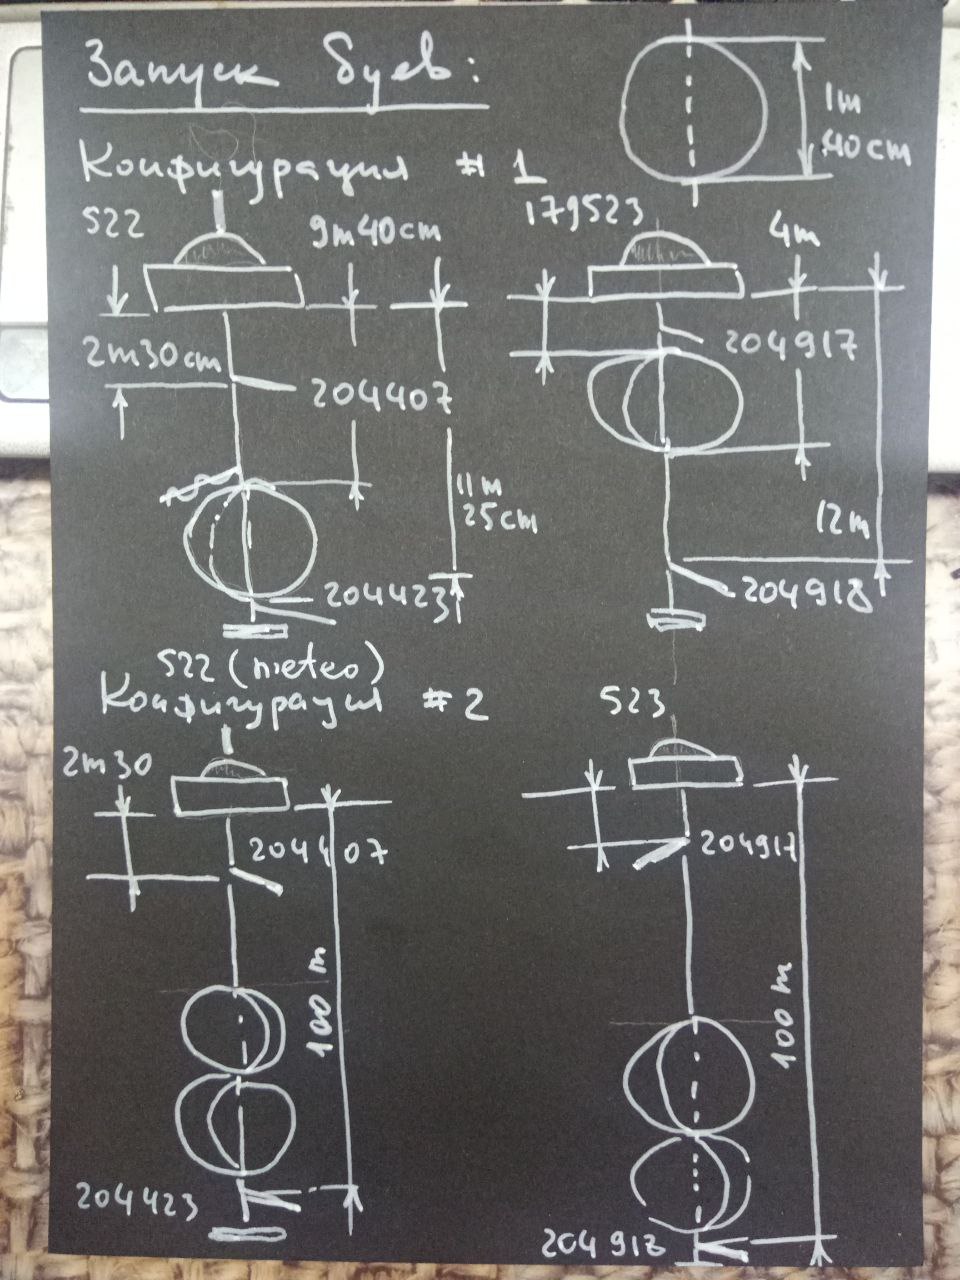 Запуск буев:
1m
40cm
Конфигурация # 1
522
9m40cm
179523
4m
2m30cm
204407
204917
11m
25cm
12m
204423
204918
522 (meteo)
Конфигурация # 2
523
2m30
204407
204917
100 m
100 m
204423
204918